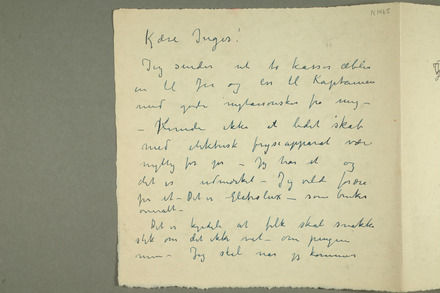 N1465
Kære Inger!
Jeg sender vel to kasser æbler
en til Jer og en til Kaptainen
med gode nytaarsønsker fra mig –
– Kunde ikke et lidet skab
med elektrisk fryseapparat være
nyttig for jer – Jeg har et og
det er udmærket – Jeg vilde
for et – Det er Elektrolux – som bruker
Det er kjedelig at folk skal snakke
slik om det ikke – om pengene
mine – Jeg skal naar jeg kommer